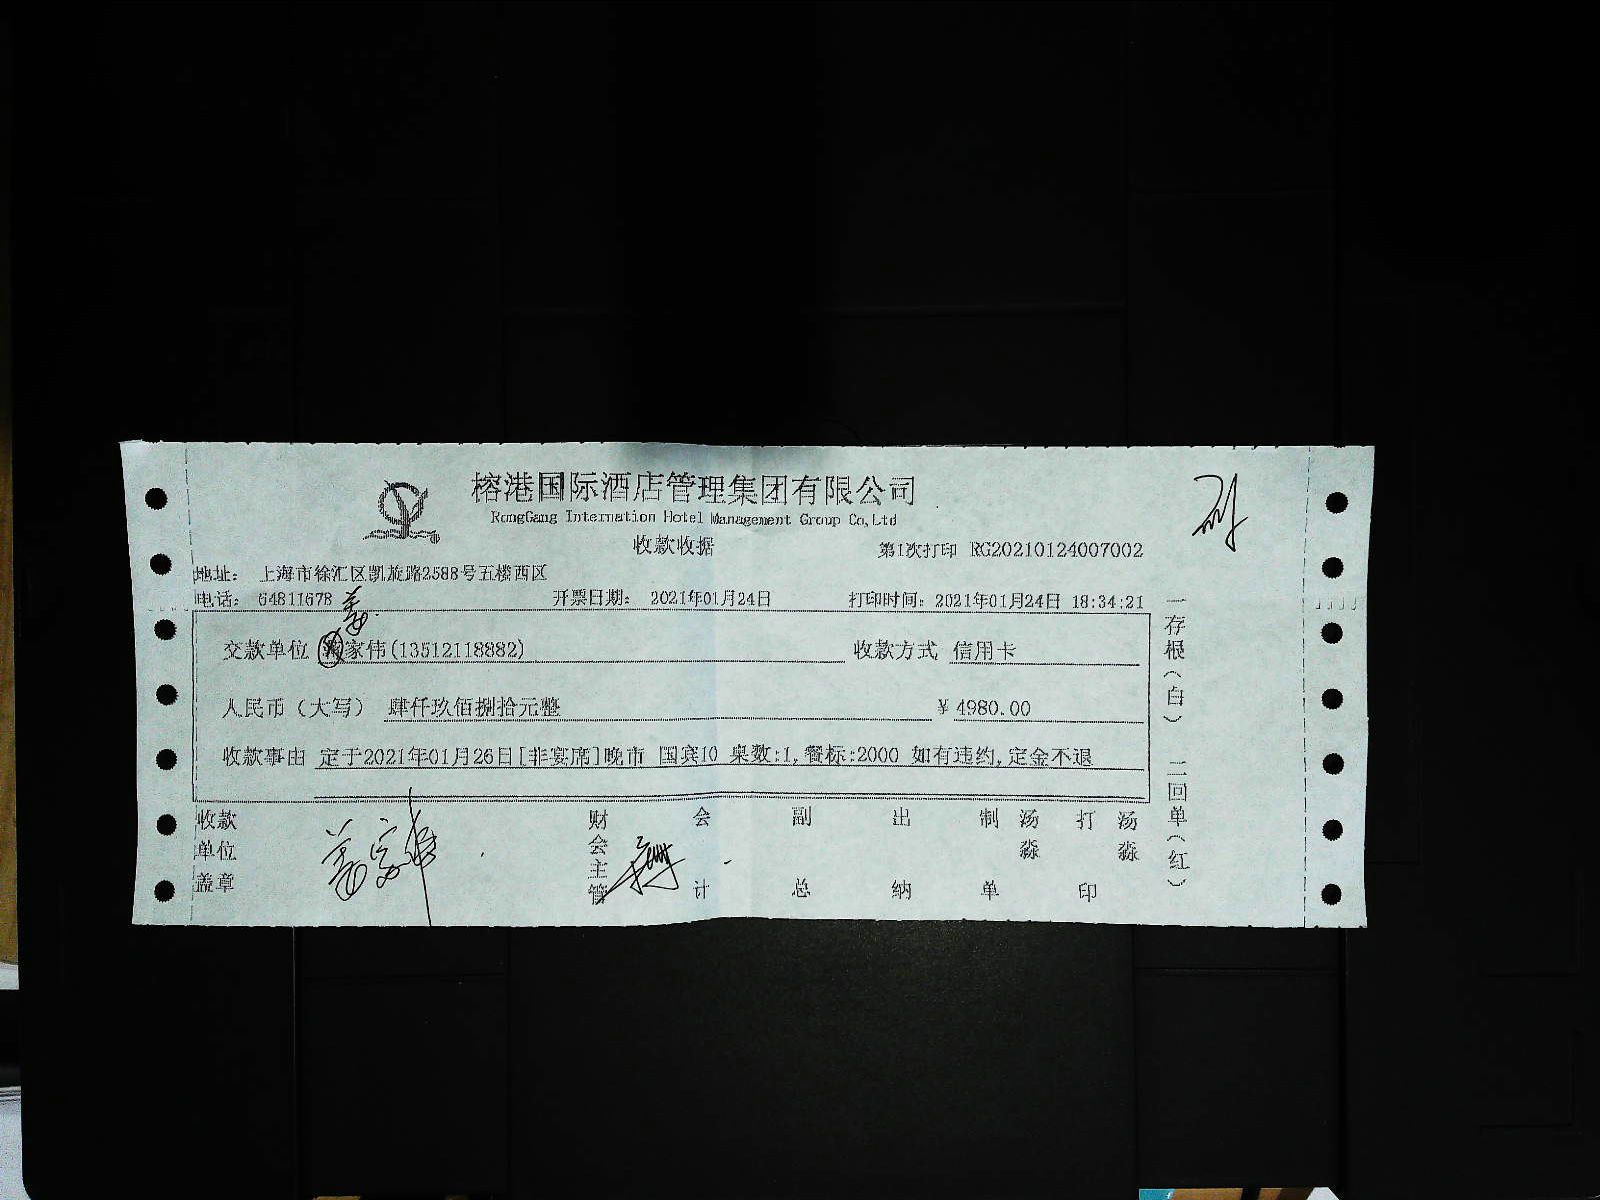 榕港国际酒店管理集团有限公司
RongGang Internation Hotel Management Group Co,Ltd
收款收据
第1次打印 RG20210124007002
地址: 上海市徐汇区凯旋路2588号五楼西区
电话: 64811678 开票日期: 2021年01月24日 打印时间: 2021年01月24日 18:34:21
姜
交款单位 家伟(13512118882) 收款方式 信用卡
人民币(大写) 肆仟玖佰捌拾元整 ¥4980.00
收款事由 定于2021年01月26日[非宴席]晚市 国宾10 桌数:1,餐标:2000 如有违约,定金不退
收款单位盖章 姜家伟
财会主管
会计
副总
出纳
制单 汤淼
打印 汤淼
一存根(白) 二回单(红)